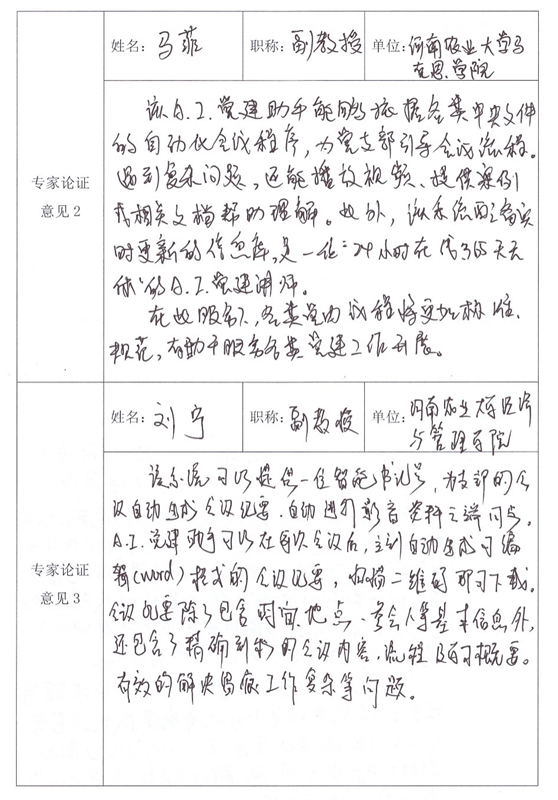 姓名： 马菲 职称： 副教授 单位： 河南农业大学马
克思学院
专家论证
意见 2
该A.I.党建助手能够依据各类中央文件
的自动化会议程序，为党支部引导会议流程。
遇到复杂问题，还能播放视频、提供案例
或相关文档帮助理解。此外，该系统配备实
时更新的信息库，是一位“24小时在线365天无
休”的A.I.党建讲师。
在此服务下，各类党内议程将更加标准、
规范，有助于服务各类党建工作开展。
姓名： 刘宁 职称： 副教授 单位： 河南农业大学经济
与管理学院
专家论证
意见 3
该系统可以提供一位智能书记员，为支部的会
议自动生成会议纪要、自动进行影音资料云端同步。
A.I.党建助手可以在每次会议后，立刻自动生成可编
辑（word）格式的会议纪要，扫描二维码即可下载。
会议纪要除了包含时间、地点、参会人等基本信息外，
还包含了精确到秒的会议内容、流程及时间概要。
有效的解决留痕工作复杂等问题。